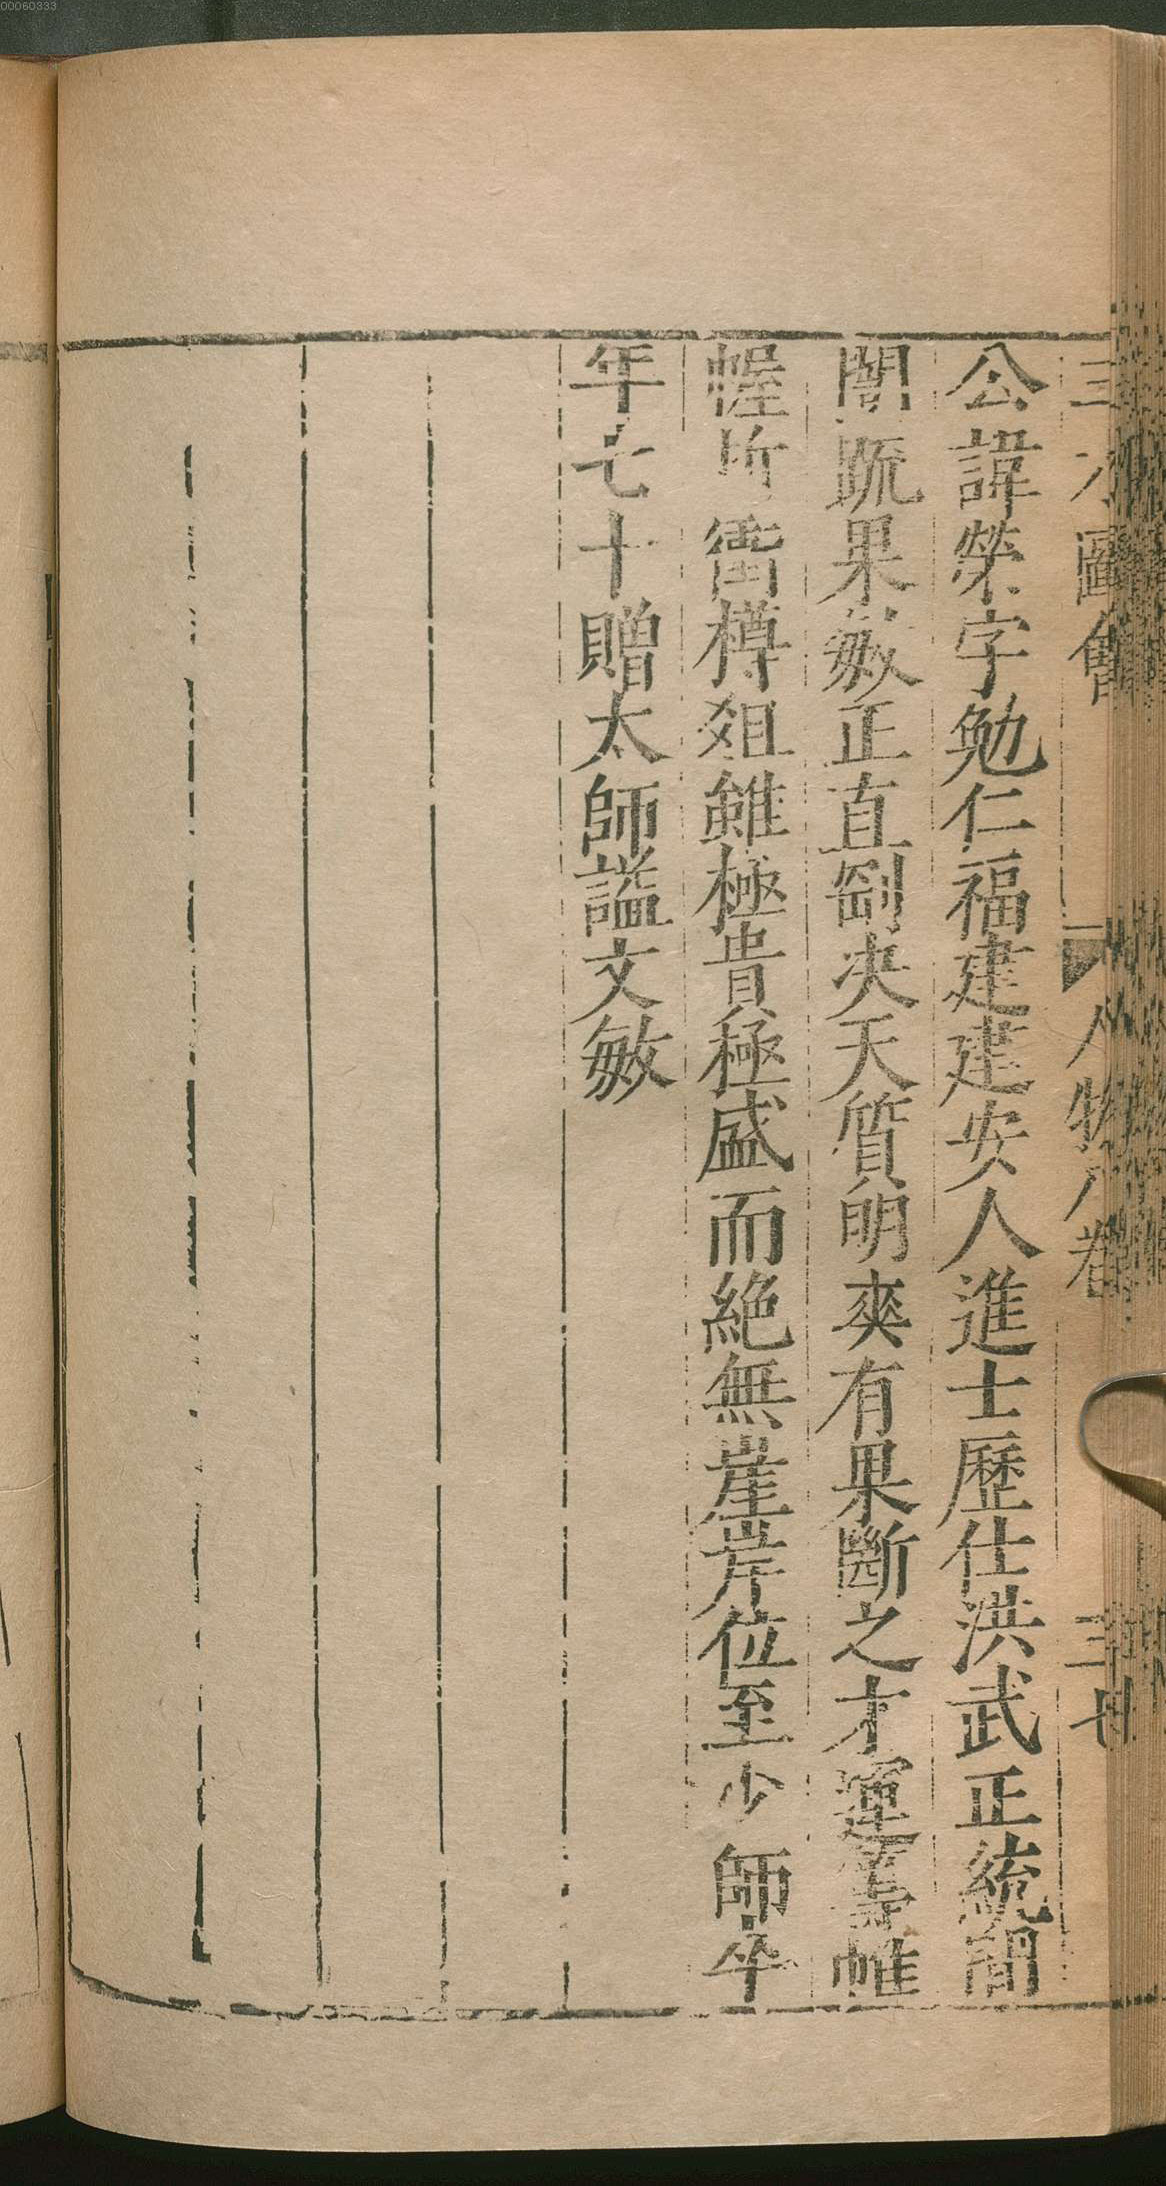 00060333
三才圖會 人物八卷 三七
公諱榮字勉仁福建建安人進士歷仕洪武正統間
闓疏果敏正直剖决天質明爽有果斷之才運籌帷
幄折衝樽俎雖極貴極盛而絶無崖岸位至少師卒
年七十贈太師諡文敏